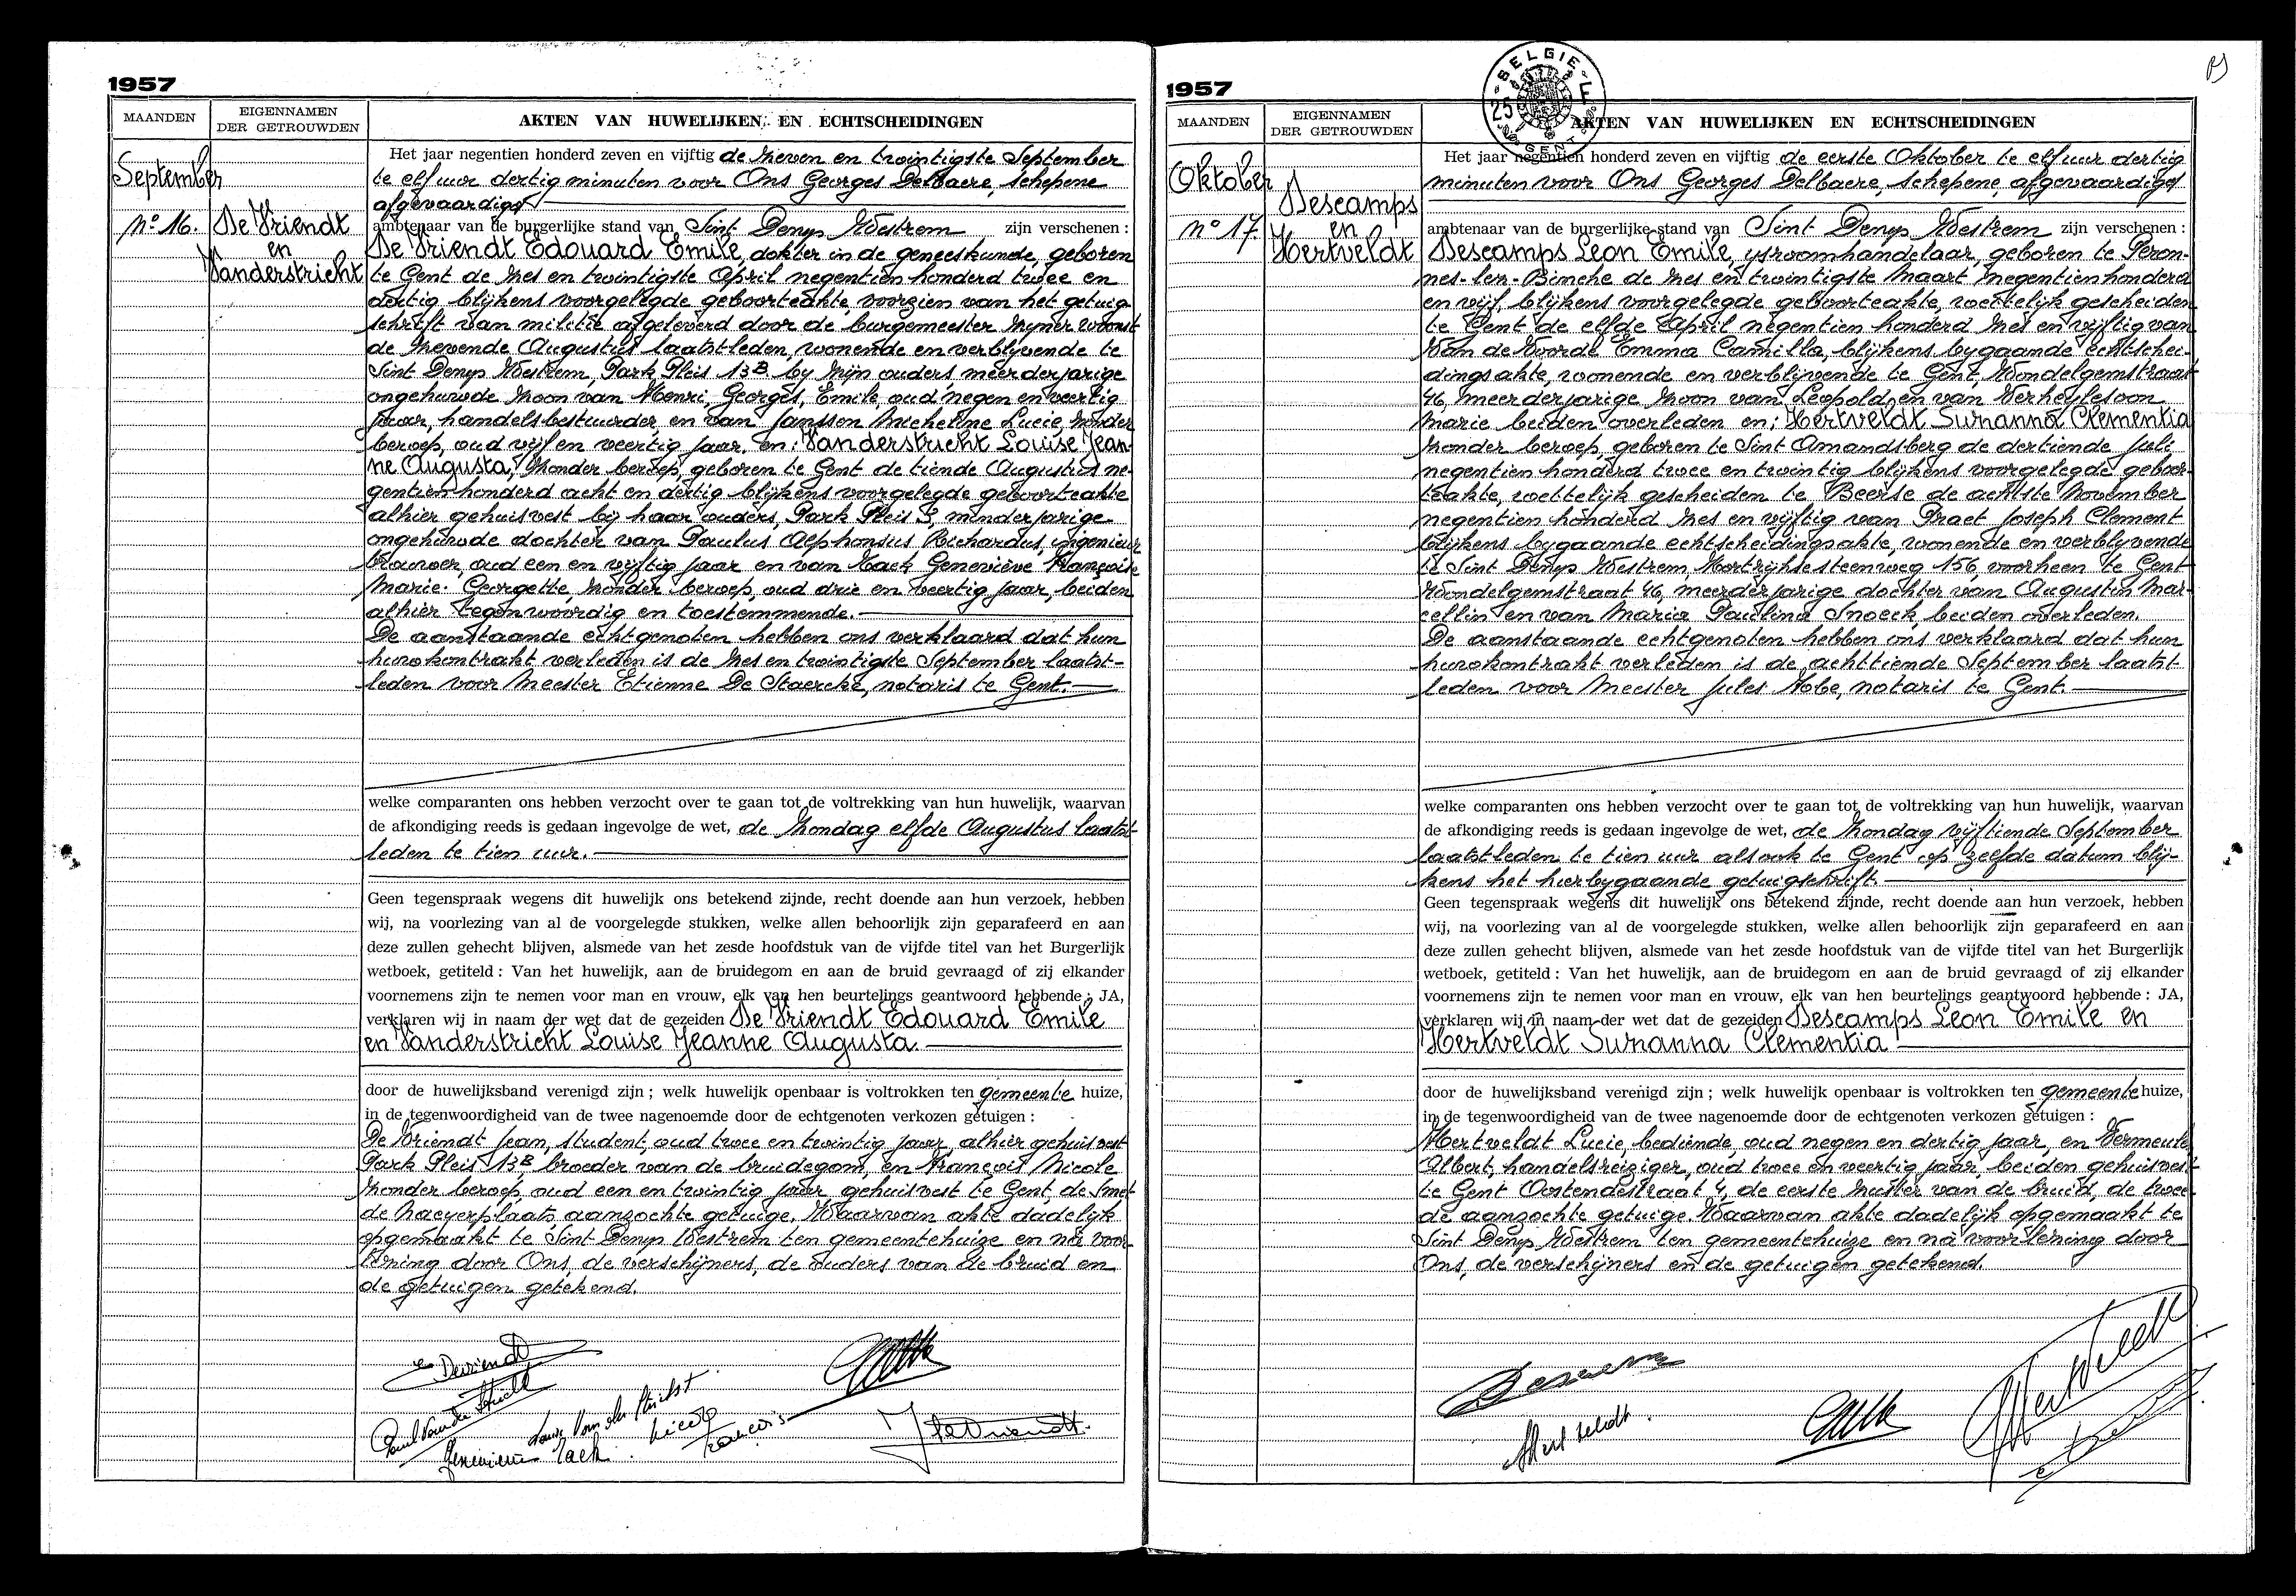 1957
MAANDEN
EIGENNAMEN
DER GETROUWDEN
AKTEN VAN HUWELIJKEN EN ECHTSCHEIDINGEN
September
n° 16.
De Vriendt
en
Vanderstricht
Het jaar negentien honderd zeven en vijftig de zeven en twintigste September
te elf uur dertig minuten voor Ons Georges Delbaere, schepene
afgevaardigd
ambtenaar van de burgerlijke stand van Sint Denys Westrem zijn verschenen :
De Vriendt Edouard Emile, dokter in de geneeskunde, geboren
te Gent de zes en twintigste April negentien honderd twee en
dertig blijkens voorgelegde geboorteakte, voorzien van het getuig-
schrift van militie afgeleverd door de burgemeester zijner woonst
de zevende Augustus laatst-leden, wonende en verblijvende te
Sint Denys Westrem, Park Pleis 13B. by zijn ouders, meerderjarige
ongehuwde zoon van Henri, Georges, Emile, oud negen en veertig
jaar, handelsbestuurder, en van Jansson Micheline Lucie, zonder
beroep, oud vijf en veertig jaar. en: Vanderstricht Louise Jean-
ne Augusta, zonder beroep, geboren te Gent de tiende Augustus ne-
gentien honderd acht en dertig blijkens voorgelegde geboorteakte
alhier gehuisvest bij haar ouders, Park Pleis 3, minderjarige
ongehuwde dochter van Paulus Alphonsus Richardus, ingenieur
brouwer, oud een en vijftig jaar en van Tack Geneviève Françoise
Marie-Georgette, zonder beroep, oud drie en veertig jaar, beiden
alhier tegenwoordig en toestemmende.
De aanstaande echtgenoten hebben ons verklaard dat hun
huwkontrakt verleden is de zes en twintigste September laatst-
leden voor Meester Etienne De Staercke, notaris te Gent.
welke comparanten ons hebben verzocht over te gaan tot de voltrekking van hun huwelijk, waarvan
de afkondiging reeds is gedaan ingevolge de wet, de zondag elfde Augustus laatst-
leden te tien uur.
Geen tegenspraak wegens dit huwelijk ons betekend zijnde, recht doende aan hun verzoek, hebben
wij, na voorlezing van al de voorgelegde stukken, welke allen behoorlijk zijn geparafeerd en aan
deze zullen gehecht blijven, alsmede van het zesde hoofdstuk van de vijfde titel van het Burgerlijk
wetboek, getiteld : Van het huwelijk, aan de bruidegom en aan de bruid gevraagd of zij elkander
voornemens zijn te nemen voor man en vrouw, elk van hen beurtelings geantwoord hebbende : JA,
verklaren wij in naam der wet dat de gezeiden De Vriendt Edouard Emile
en Vanderstricht Louise Jeanne Augusta.
door de huwelijksband verenigd zijn ; welk huwelijk openbaar is voltrokken ten gemeente huize,
in de tegenwoordigheid van de twee nagenoemde door de echtgenoten verkozen getuigen :
De Vriendt Jean, student, oud twee en twintig jaar, alhier gehuisvest
Park Pleis 13B, broeder van de bruidegom, en François Nicole
zonder beroep, oud een en twintig jaar, gehuisvest te Gent, de Smet
de Naeyerplaats, aanzochte getuige. Waarvan akte dadelijk
opgemaakt te Sint Denys Westrem ten gemeentehuize en na voor-
lezing door Ons, de verschijners, de ouders van de bruid en
de getuigen getekend.
e Devriendt
Paul Vander Stricht
Louise Van der Stricht
Geneviève Tack.
Nicole
François
J. De Vriendt.
1957
BELGIE
25 F
GENT
MAANDEN
EIGENNAMEN
DER GETROUWDEN
AKTEN VAN HUWELIJKEN EN ECHTSCHEIDINGEN
Oktober
n° 17.
Descamps
en
Hertveldt
Het jaar negentien honderd zeven en vijftig de eerste Oktober te elf uur dertig
minuten voor Ons Georges Delbaere, schepene, afgevaardigd
ambtenaar van de burgerlijke stand van Sint Denys Westrem zijn verschenen :
Descamps Leon Emile, ysroomhandelaar, geboren te Peron-
nes-lez-Binche de zes en twintigste Maart negentien honderd
en vijf, blijkens voorgelegde geboorteakte, wettelijk gescheiden
te Gent de elfde April negentien honderd zes en vijftig van
Van de Voorde Emma Camilla, blijkens bygaande echtschei-
dingsakte, wonende en verblijvende te Gent, Wondelgemstraat
46, meerderjarige zoon van Leopold en van Verheylesoon
Marie beiden overleden en; Hertveldt Suzanna Clementia
zonder beroep, geboren te Sint Amandsberg de dertiende Juli
negentien honderd twee en twintig blijkens voorgelegde geboor-
teakte, wettelijk gescheiden te Beerse de achtste November
negentien honderd zes en vijftig van Praet Joseph Clement
blijkens bygaande echtscheidingsakte, wonende en verblyvende
te Sint Denys Westrem, Kortrijksesteenweg 156, voorheen te Gent
Wondelgemstraat 46, meerderjarige dochter van Augustin Mar-
cellin en van Maria Paulina Snoeck beiden overleden.
De aanstaande echtgenoten hebben ons verklaard dat hun
huwkontrakt verleden is de achttiende September laatst-
leden voor Meester Jules Nobe, notaris te Gent.
welke comparanten ons hebben verzocht over te gaan tot de voltrekking van hun huwelijk, waarvan
de afkondiging reeds is gedaan ingevolge de wet, de zondag vijftiende September
laatstleden te tien uur alsook te Gent op zelfde datum blij-
kens het hierbygaande getuigschrift.
Geen tegenspraak wegens dit huwelijk ons betekend zijnde, recht doende aan hun verzoek, hebben
wij, na voorlezing van al de voorgelegde stukken, welke allen behoorlijk zijn geparafeerd en aan
deze zullen gehecht blijven, alsmede van het zesde hoofdstuk van de vijfde titel van het Burgerlijk
wetboek, getiteld : Van het huwelijk, aan de bruidegom en aan de bruid gevraagd of zij elkander
voornemens zijn te nemen voor man en vrouw, elk van hen beurtelings geantwoord hebbende : JA,
verklaren wij in naam der wet dat de gezeiden Descamps Leon Emile en
Hertveldt Suzanna Clementia
door de huwelijksband verenigd zijn ; welk huwelijk openbaar is voltrokken ten gemeente huize,
in de tegenwoordigheid van de twee nagenoemde door de echtgenoten verkozen getuigen :
Hertveldt Lucie, bediende, oud negen en dertig jaar, en Vermeule
Albert, handelsreiziger, oud twee en veertig jaar, beiden gehuisvest
te Gent Oostendestraat 4, de eerste zuster van de bruid, de twee-
de aanzochte getuige. Waarvan akte dadelijk opgemaakt te
Sint Denys Westrem ten gemeentehuize en na voorlezing door
Ons, de verschijners en de getuigen getekend.
Hertveldt.
Hertveldt